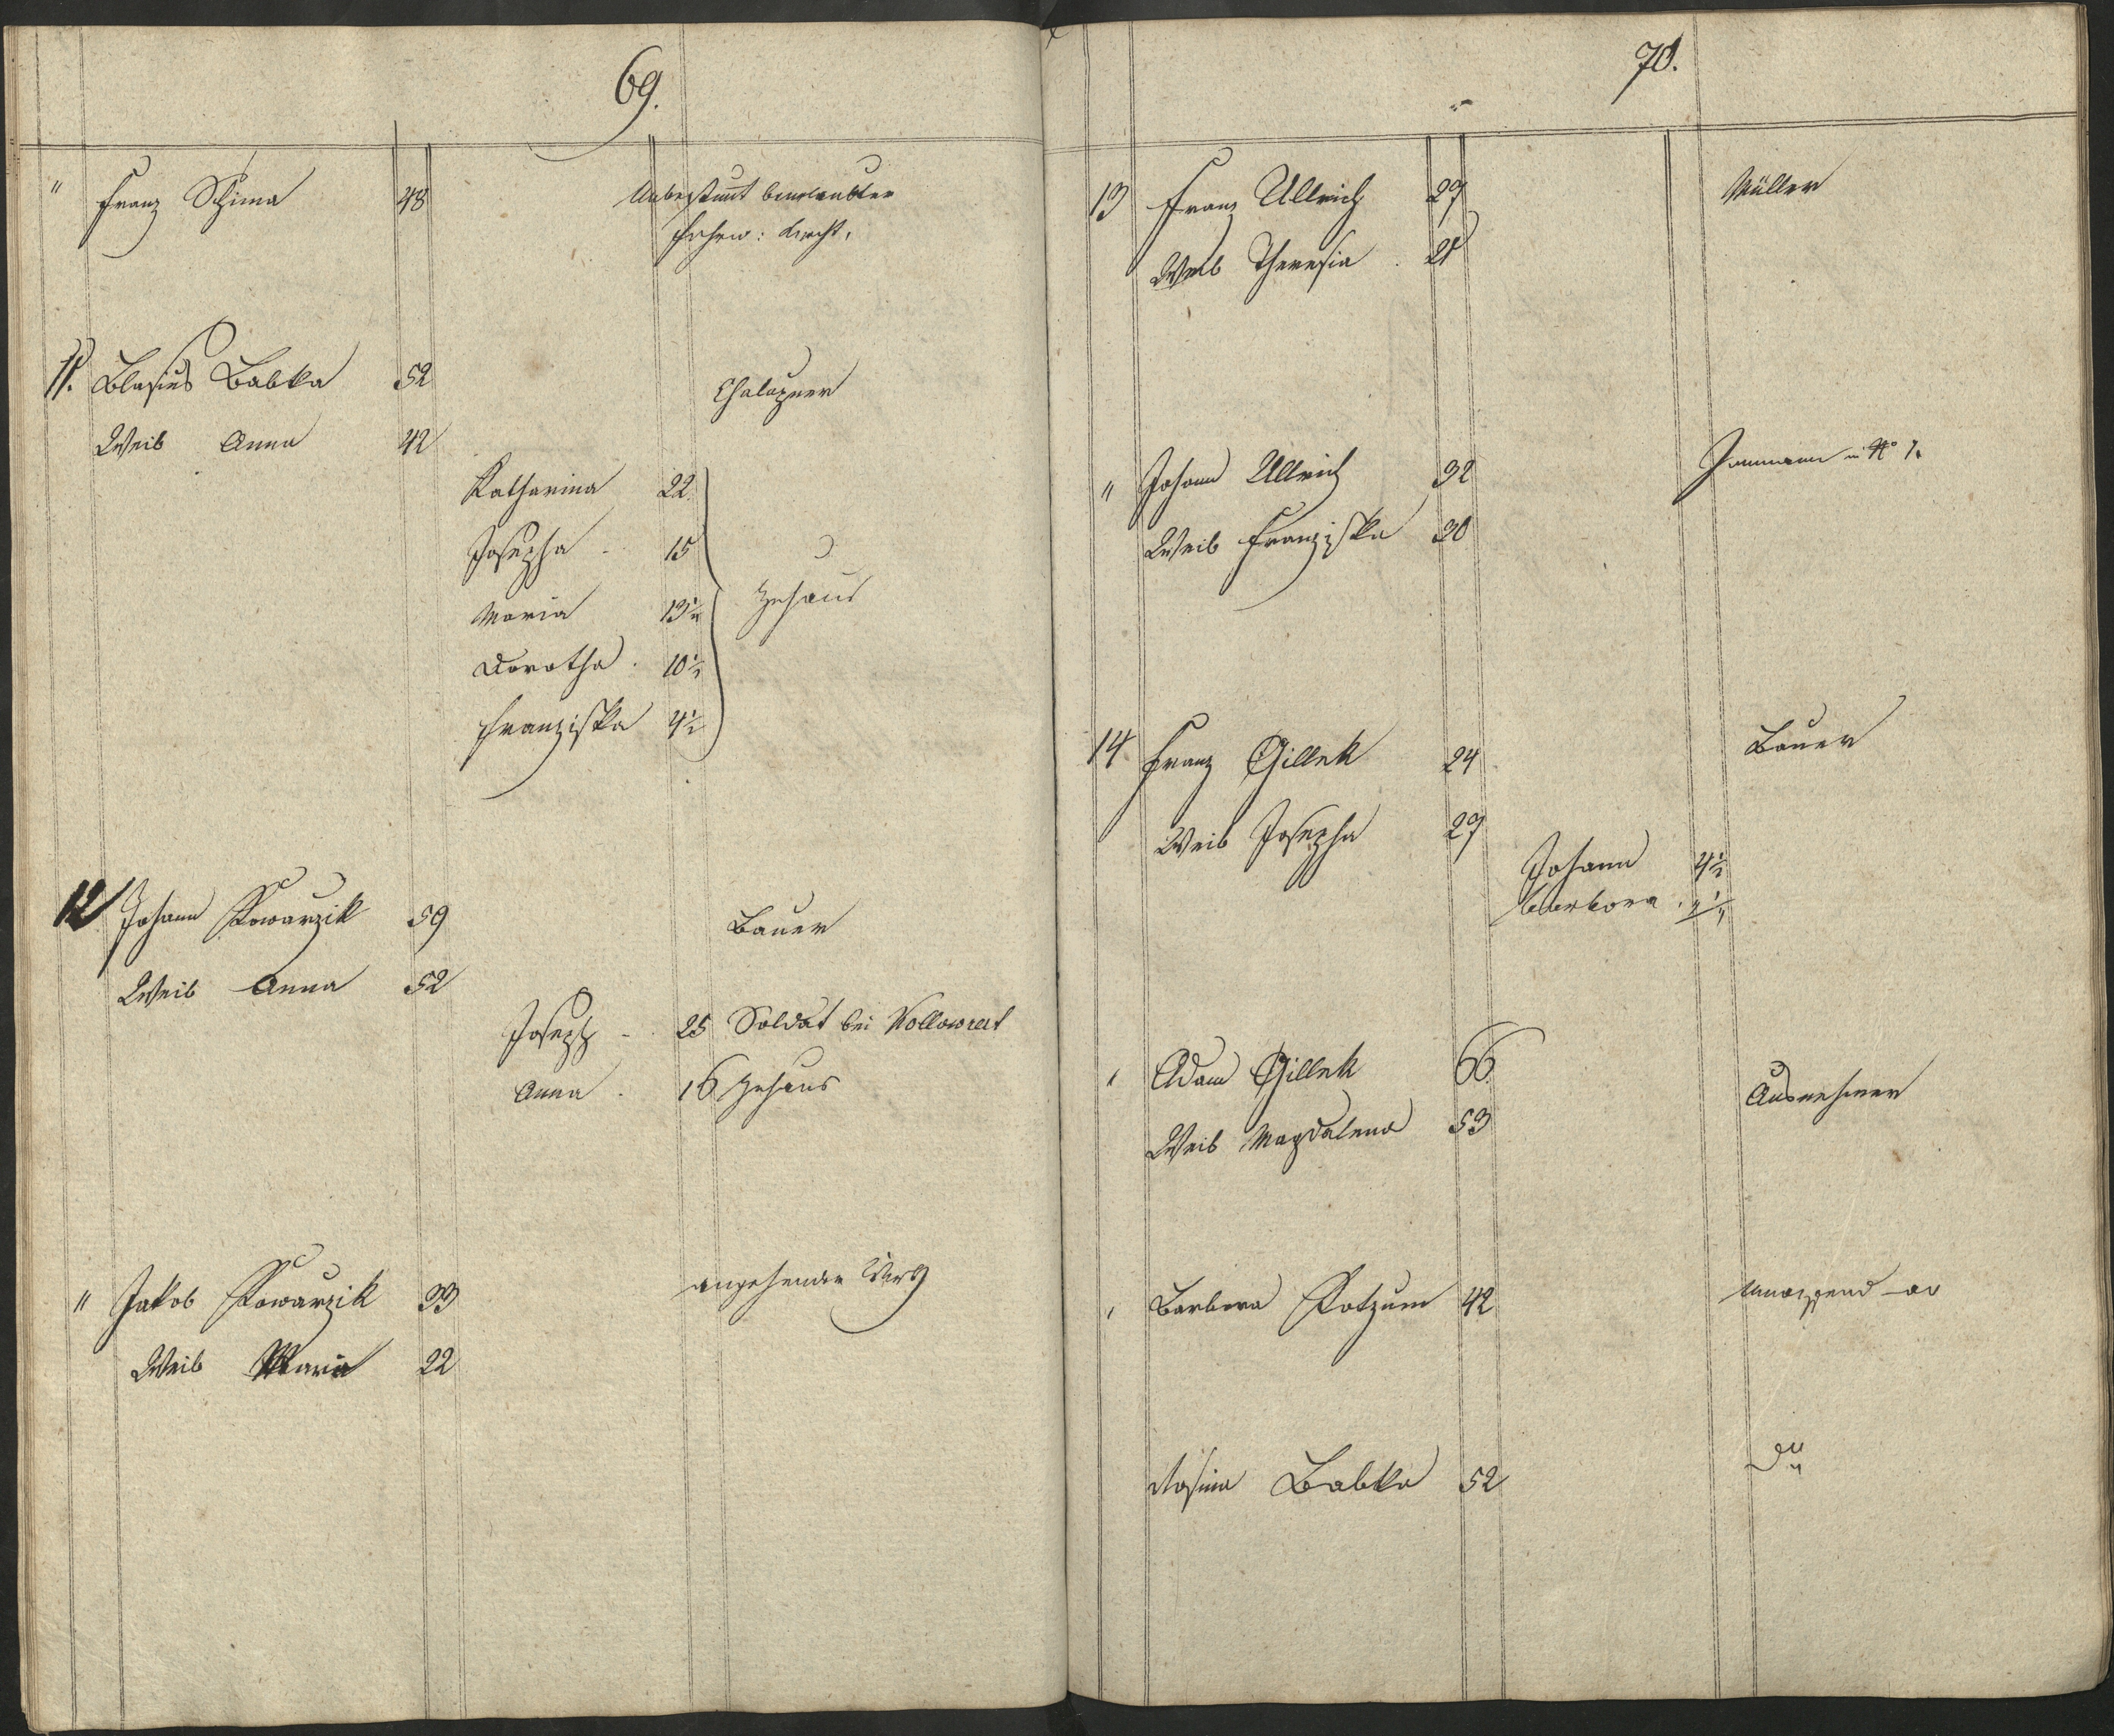 69.
" Franz Schima 48 Unbestimt beurlaubter
Fuhrw: Knecht.
11. Blasius Babka 52 Chalupner
Weib Anna 42
Katharina 22
Josepha 15
Maria 13½
zuhaus
Dorotha 10½
Franziska 4½
12 Johann Kowarzik 59 Bauer
Weib Anna 52
Joseph 25 Soldat bei Kollowrat
Anna 16 zuhaus
" Jakob Kowarzik 33 angehender
Weib Maria 22
70.
13 Franz Ullrich 29 Müller
Weib Theresia 21
" Johann Ullrich 32 Inmann in No 7.
Weib Franziska 30
14 Franz Gillek 24 Bauer
Weib Josepha 29
Johann 4½
Barbora
" Adam Gillek 66 Ausnehmer
Weib Magdalena 53
" Barbora Kotzum 42
Rosina Babka 52 do